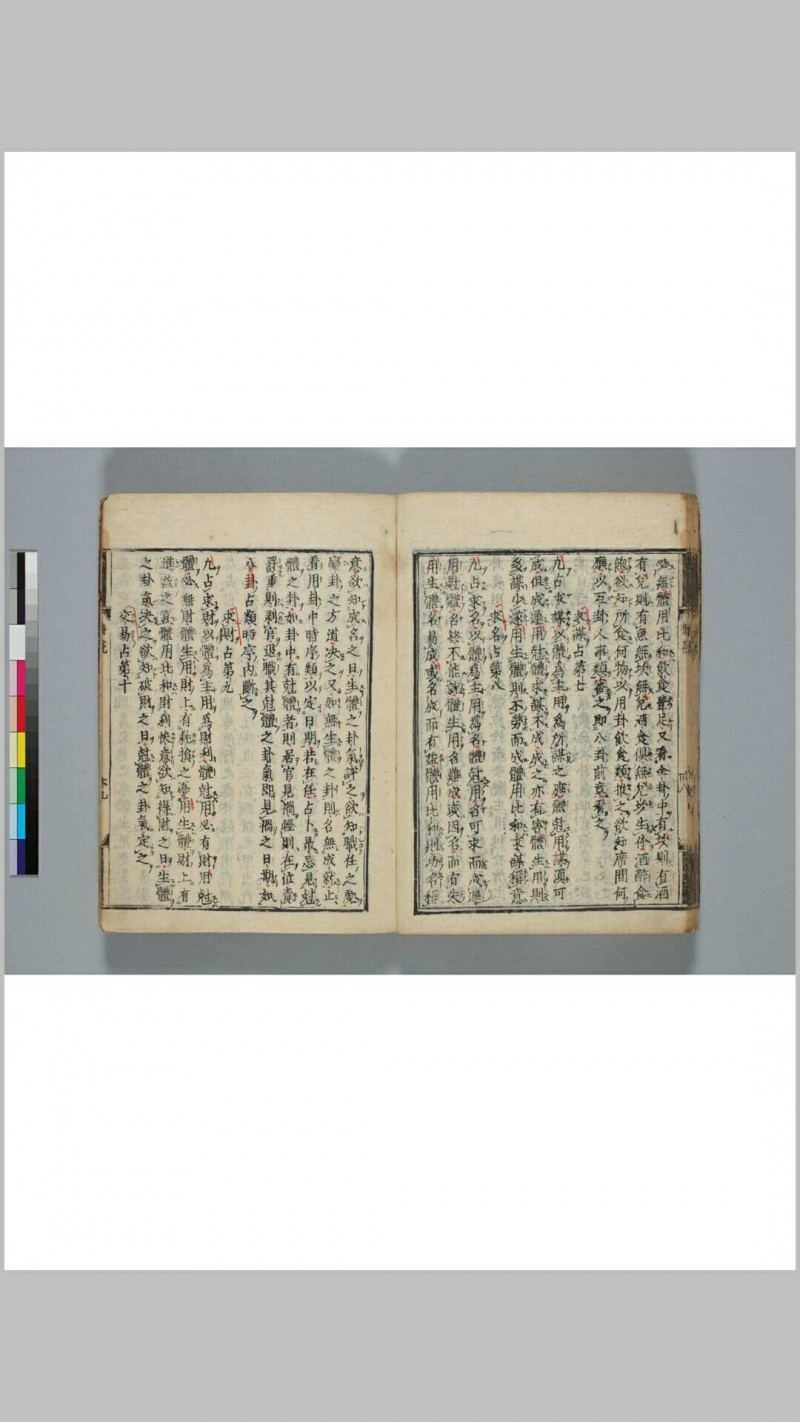 必無體用比和飲食豐足又看全卦中有坎則有酒
有兌則有魚無坎無兌酒食俱無兌坎生体酒醉食
飽欲知所食何物以用卦飲食類推之欲知席間何
應以互卦人事類審之即八卦前章看之
求謀占第七
凡占求謀以體為主用為所謀之應體尅用謀漢可
成但成遲用尅體求謀不成成之亦有害體生用則
多謀少遂用生體則不勞而成體用比和求謀稱意
求名占第八
凡占求名以體為主用為名體尅用名可求而成遲
用尅體名終不能就體生用名難成或因名而有失
用生體名易成或名成而有 體用比和則功名稱
意欲知成名之日生體之卦氣詳之欲知職任之處
變卦之方道决之又如無生體之卦則名無成就止
看用卦中時序類以定日期若在任占卜最忌見尅
體之卦如卦中有尅體者則居官見禍輕則在位責
罸重則剥官退職其尅體之卦氣即見禍之日期如
八卦占類時序內斷之
求財占第九
凡占求財以體為主用為財利體尅用必有財用尅
體必無財體生用財上有耗損之憂用生體財上有
進益之喜體用比和財利快意欲知得財之日生體
之卦氣决之欲知破財之日尅體之卦氣定之
交易占第十